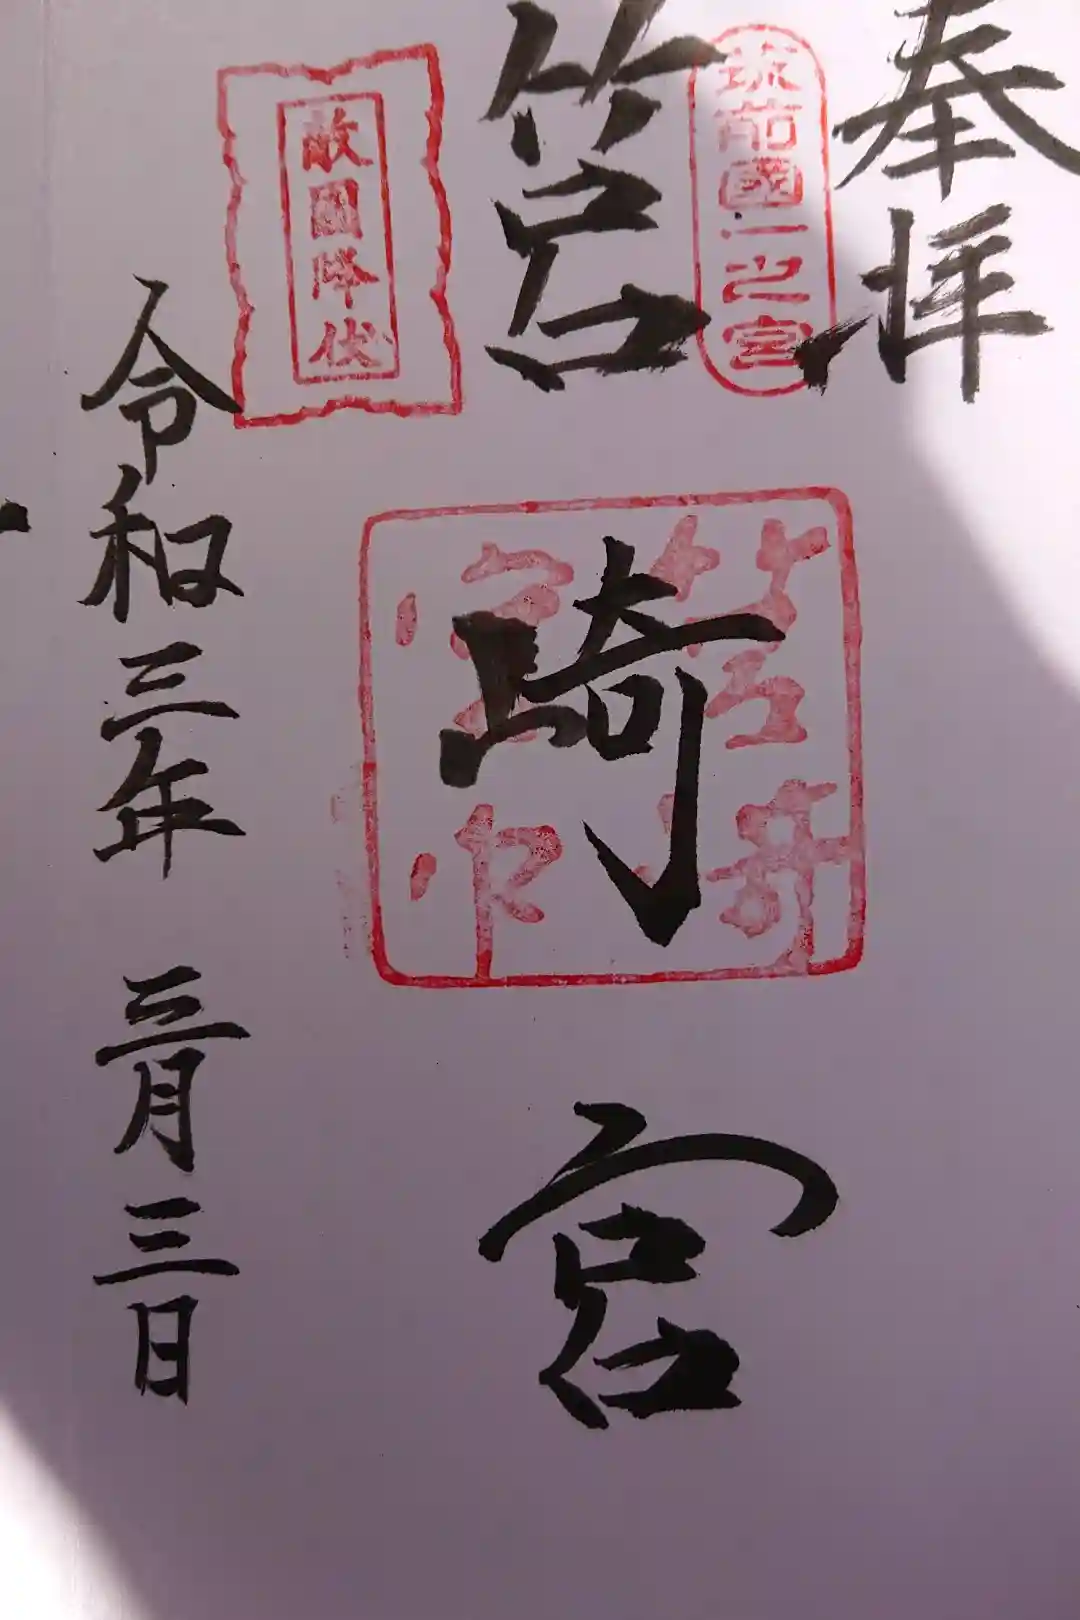 奉拝
筑前國一之宮
筥崎宮
敵國降伏
筥崎宮印
令和三年 三月三日